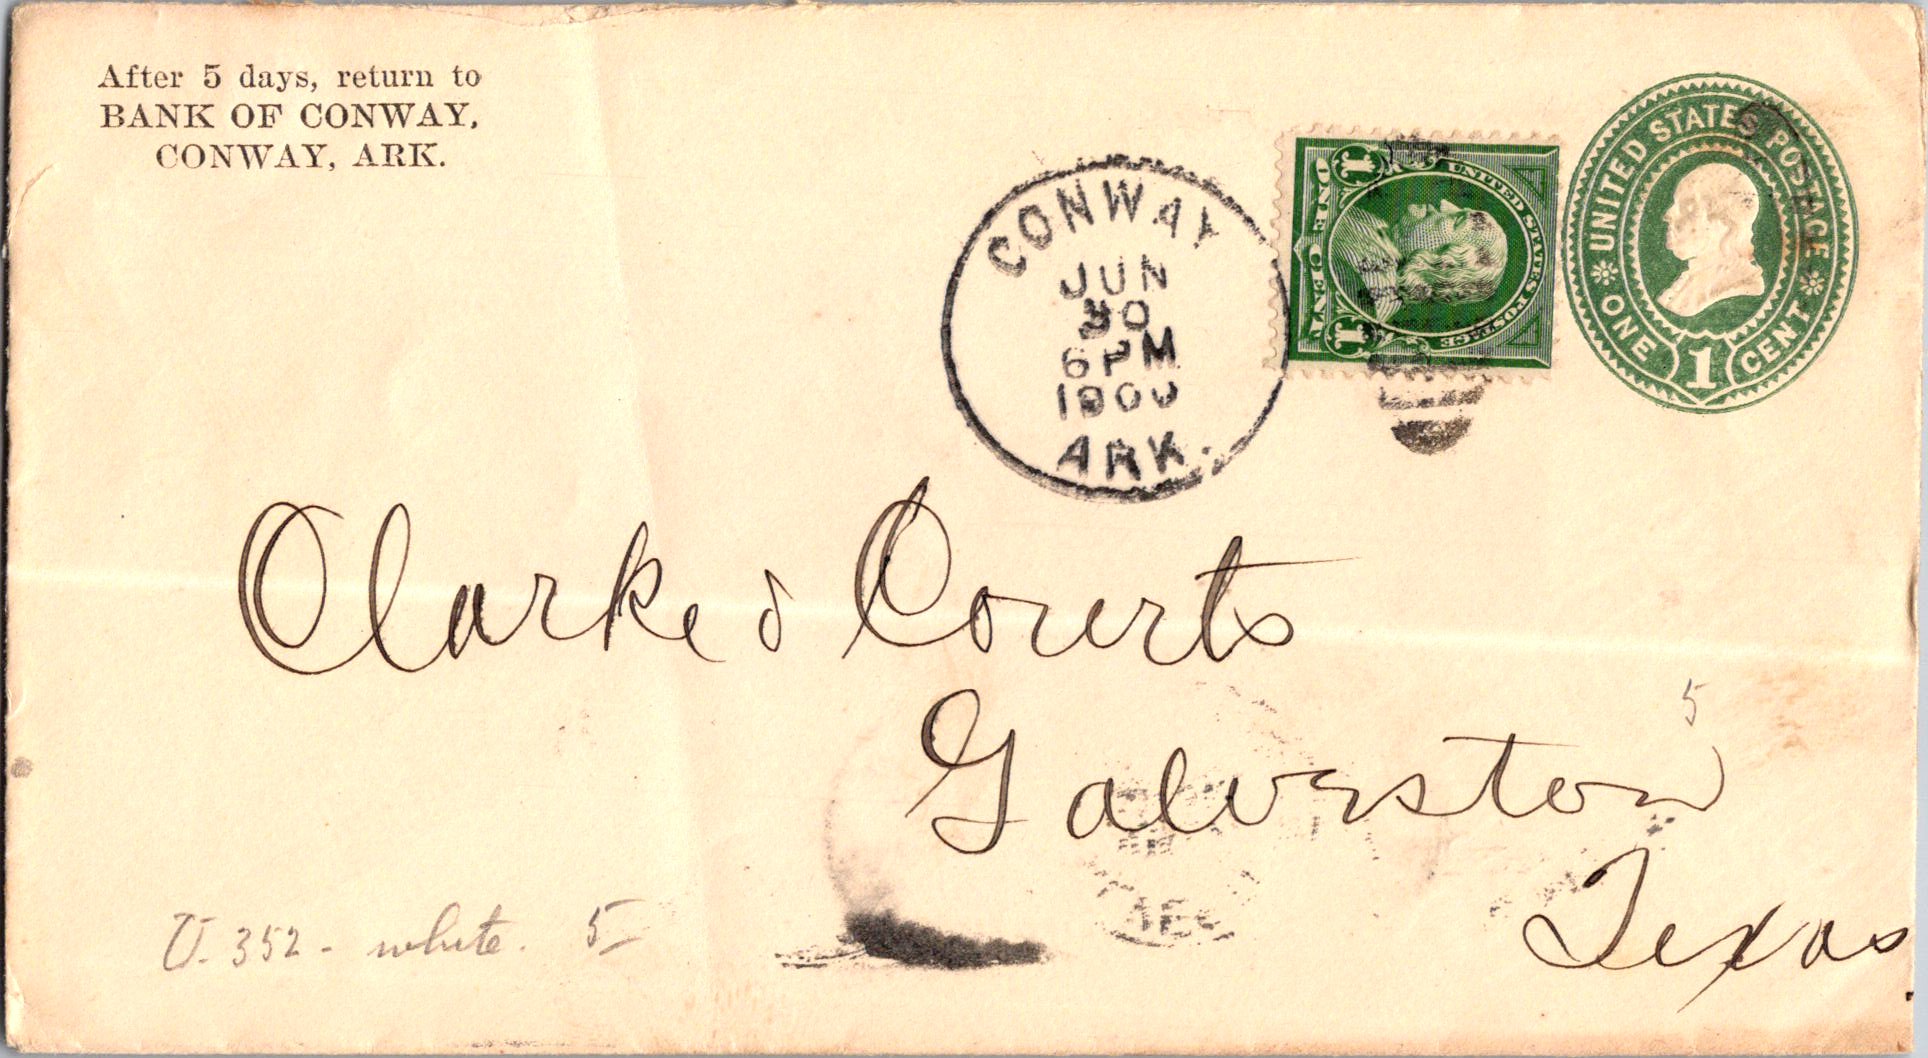 After 5 days, return to
BANK OF CONWAY,
CONWAY, ARK.
CONWAY
JUN
30
6 PM
1900
ARK.
UNITED STATES POSTAGE
1 ONE CENT 1
UNITED STATES POSTAGE
ONE 1 CENT
Clarke & Courts
Galveston
Texas
5
U-352 - white. 5-